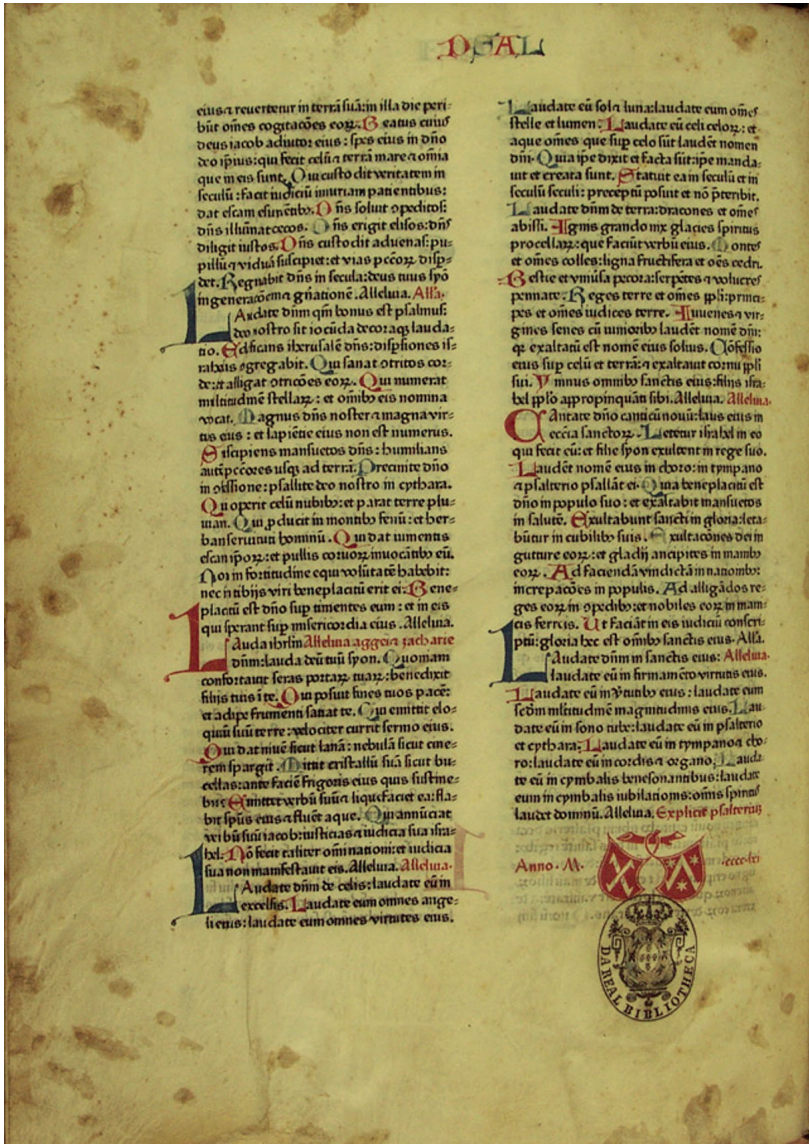 PSAL
eius ⁊ revertetur in terrā suā: in illa die peri-
būt om̄es cogitacōes eoꝝ. Beatus cuius
deus iacob adiutor eius: spes eius in dn̄o
deo ip̄ius: qui fecit celū ⁊ terrā mare ⁊ om̄ia
que in eis sunt. Qui custodit veritatem in
seculū: facit iudiciū iniuriam patientibus:
dat escam esurientibꝫ. Dn̄s soluit ꝯpeditos:
dn̄s illuīat cecos. Dn̄s erigit elisos: dn̄s
diligit iustos. Dn̄s custodit aduenas: pu-
pillū ⁊ viduā suscipiet: et vias pc̄coꝝ disp̄-
det. Regnabit dn̄s in secula: deus tuus syō
in generacōem ⁊ gn̄ationē. Alleluia. All'a.
Laudate dn̄m qm̄ bonus est psalmus:
deo nostro sit iocūda decoraqꝫ lauda-
tio. Edificans iherusalē dn̄s: disp̄siones is-
rahelis ꝯgregabit. Qui sanat ꝯtritos cor-
de: et alligat ꝯtricōes eoꝝ. Qui numerat
mltitudinē stellaꝝ: et om̄ibꝫ eis nomina
vocat. Magnus dn̄s noster ⁊ magna vir-
tus eius: et sapiētie eius non est numerus.
Suscipiens mansuetos dn̄s: humilians
autē pc̄cores usqꝫ ad terrā. Precinite dn̄o
in ꝯfessione: psallite deo nostro in cythara.
Qui operit celū nubibꝫ: et parat terre plu-
uiam. Qui ꝓducit in montibꝫ fenū: et her-
bam seruituti hominū. Qui dat iumentis
escam ip̄oꝝ: et pullis coruoꝝ inuocātibꝫ eū.
Non in fortitudine equi volūtatē habebit:
nec in tibijs viri beneplacitū erit ei. Bene-
placitū est dn̄o sup timentes eum: et in eis
qui sperant sup misericordia eius. Alleluia.
Lauda ihrl̄m Alleluia aggei ⁊ zacharie
dn̄m: lauda deū tuū syon. Quoniam
confortauit seras portaꝝ tuaꝝ: benedixit
filijs tuis ī te. Qui posuit fines tuos pacē:
et adipe frumenti satiat te. Qui emittit elo-
quiū suū terre: velociter currit sermo eius.
Qui dat niuē sicut lanā: nebulā sicut cine-
rem spargit. Mittit cristallū suā sicut bu-
cellas: ante faciē frigoris eius quis sustine-
bit. Emittet verbū suū ⁊ liquefaciet ea: fla-
bit sp̄us eius ⁊ fluēt aque. Qui annūciat
verbū suū iacob: iusticias ⁊ iudicia sua isra-
hel. Nō fecit taliter om̄i nationi: et iudicia
sua non manifestauit eis. Alleluia. Alleluia.
Laudate dn̄m de celis: laudate eū in
excelsis. Laudate eum omnes ange-
li eius: laudate eum omnes virtutes eius.
Laudate eū sol ⁊ luna: laudate eum om̄es
stelle et lumen. Laudate eū celi celoꝝ: et
aque om̄es que sup celos sūt laudēt nomen
dn̄i. Quia ip̄e dixit et facta sūt: ip̄e manda-
uit et creata sunt. Statuit ea in seculū et in
seculū seculi: preceptū posuit et nō p̄teribit.
Laudate dn̄m de terra: dracones et om̄es
abissi. Ignis grando nix glacies spiritus
procellaꝝ: que faciūt verbū eius. Montes
et om̄es colles: ligna fructifera et oēs cedri.
Bestie et vniūsa pecora: serpētes ⁊ volucres
pennate. Reges terre et om̄es pp̄li: princi-
pes et om̄es iudices terre. Iuuenes ⁊ vir-
gines senes cū iunioribꝫ laudēt nomē dn̄i:
qꝛ exaltatū est nomē eius solius. Cōfessio
eius sup celū et terrā: ⁊ exaltauit cornu pp̄li
sui. Ymnus omnibꝫ sanctis eius: filijs isra-
hel pp̄lo appropinquāti sibi. Alleluia. Alleluia.
Cantate dn̄o canticū nouū: laus eius in
ecc̄ia sanctoꝝ. Letetur israhel in eo
qui fecit eū: et filie syon exultent in rege suo.
Laudēt nomē eius in choro: in tympano
⁊ psalterio psallāt ei. Quia beneplacitū est
dn̄o in populo suo: et exaltabit mansuetos
in salutē. Exultabunt sancti in gloria: leta-
būtur in cubilibꝫ suis. Exultacōnes dei in
gutture eoꝝ: et gladij ancipites in manibꝫ
eoꝝ. Ad faciendā vindictā in nationibꝫ:
increpacōes in populis. Ad alligādos re-
ges eoꝝ in ꝯpedibꝫ: et nobiles eoꝝ in mani-
cis ferreis. Ut faciāt in eis iudiciū conscri-
ptū: gloria hec est om̄ibꝫ sanctis eius. All'a.
Laudate dn̄m in sanctis eius: Alleluia.
laudate eū in firmamēto virtutis eius.
Laudate eū in v̄tutibꝫ eius: laudate eum
scd̄m mltitudinē magnitudinis eius. Lau-
date eū in sono tube: laudate eū in psalterio
et cythara. Laudate eū in tympano ⁊ cho-
ro: laudate eū in cordis ⁊ organo. Lauda-
te eū in cymbalis benesonantibus: laudate
eum in cymbalis iubilationis: om̄is spiritus
laudet dominū. Alleluia. Explicit psalteriū
Anno. M. cccc lxi
DA REAL BIBLIOTHECA